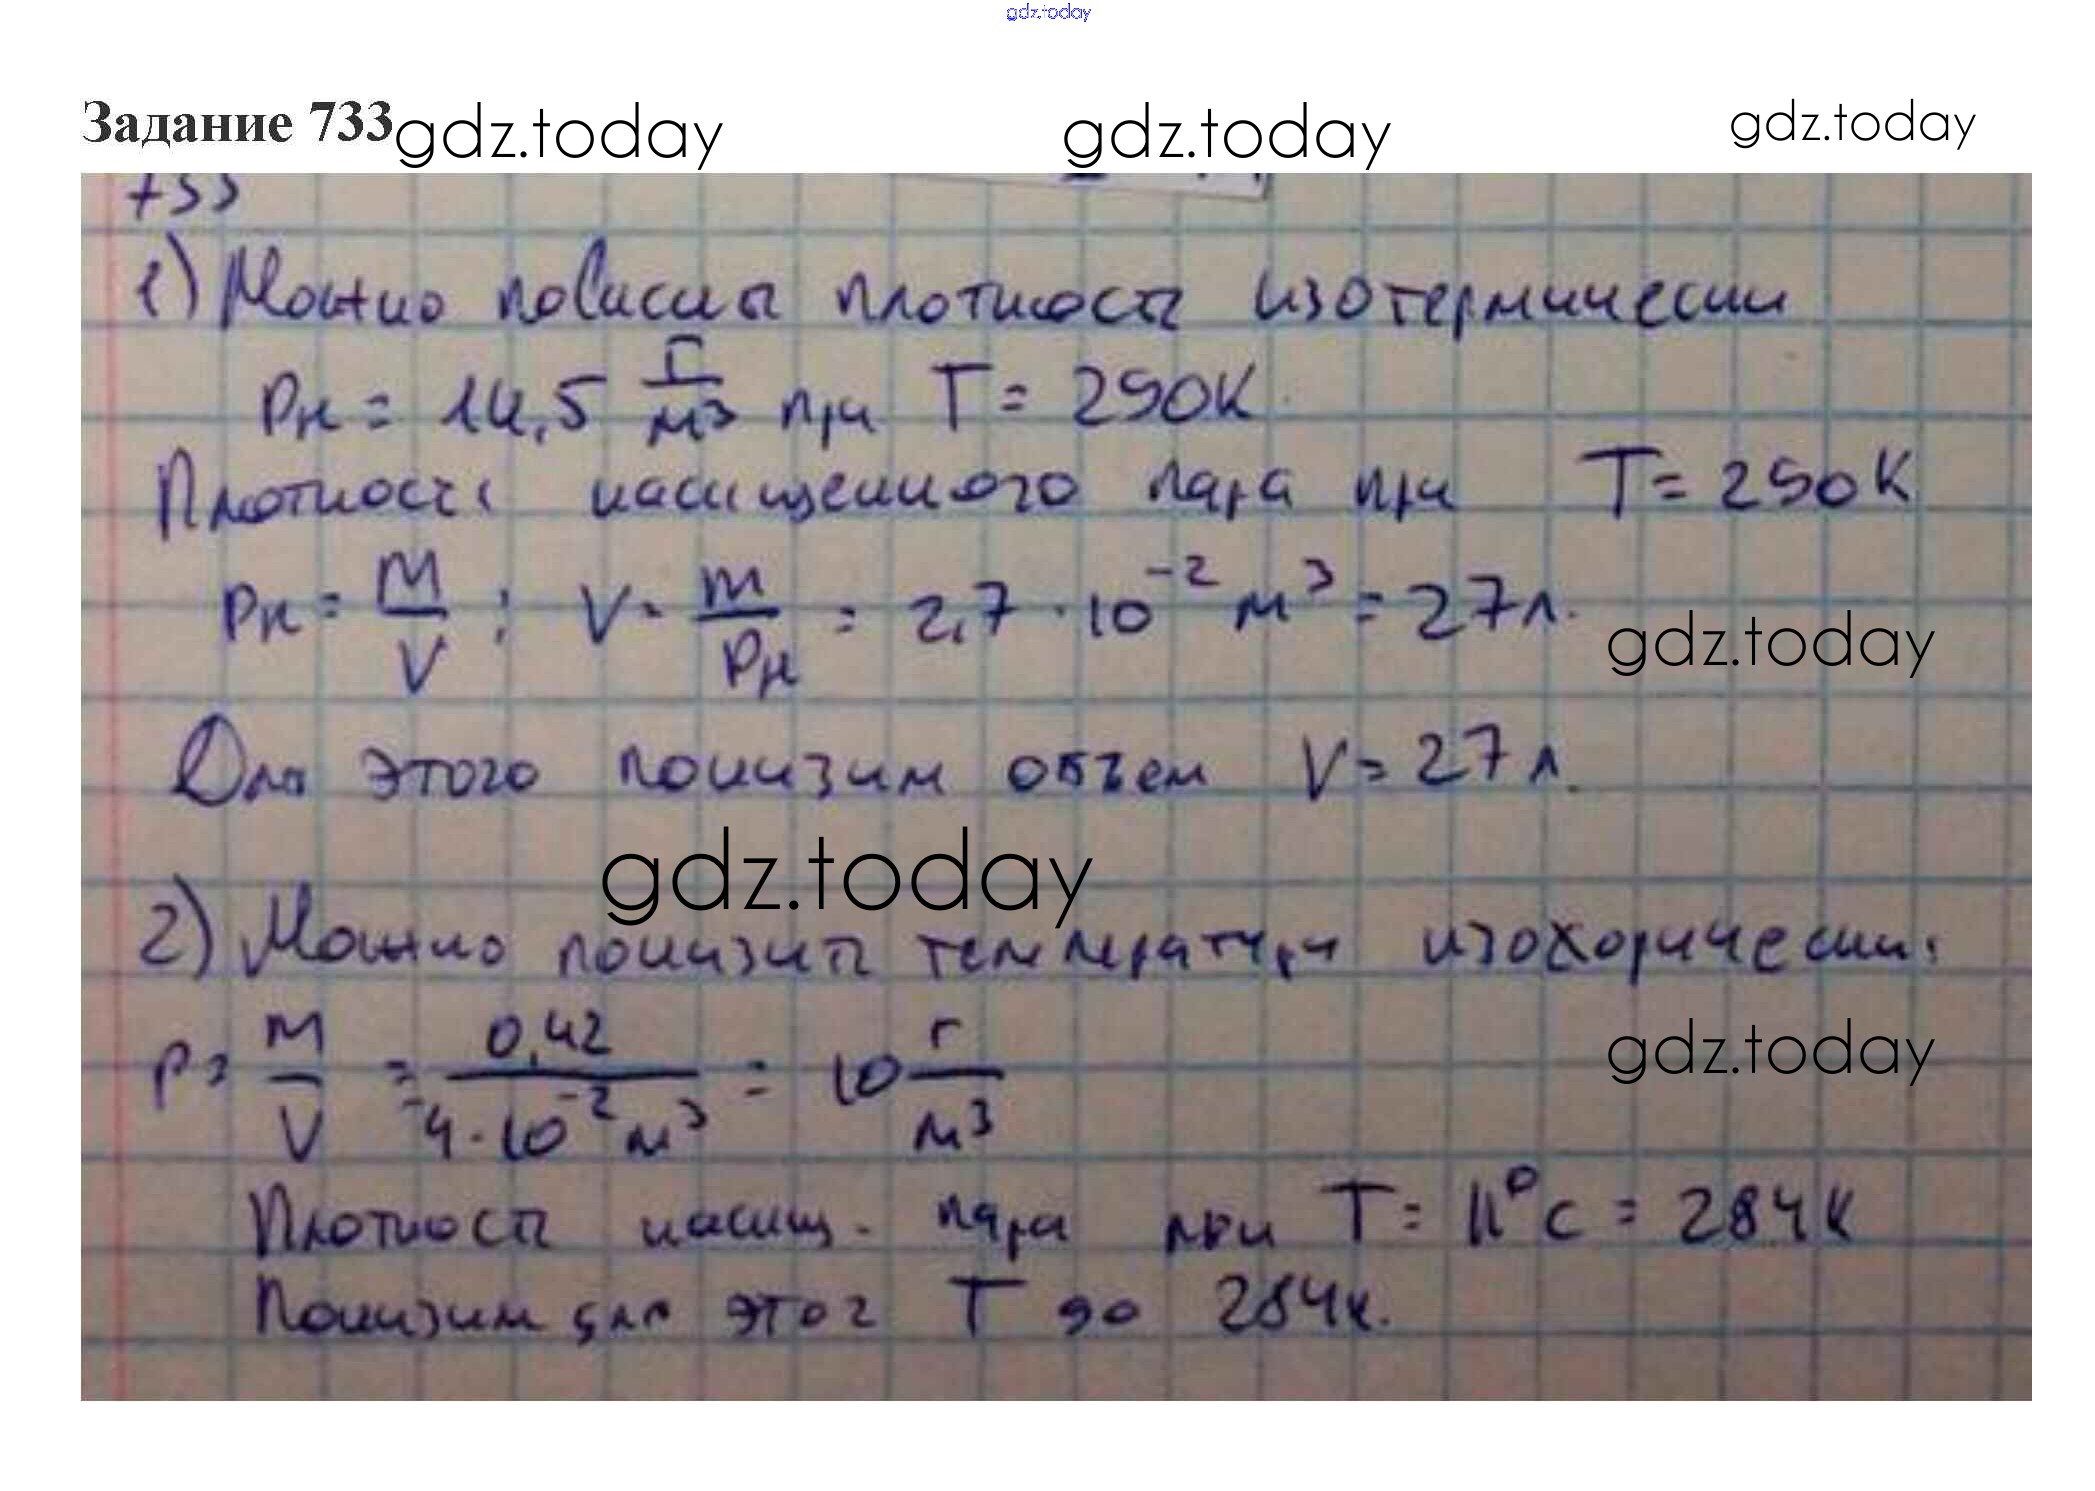 gdz.today
Задание 733 gdz.today gdz.today gdz.today
733
1) Можно повысить плотность изотермически
ρн = 14,5 г/м³ при T = 290К
Плотность насыщенного пара при T = 290К
ρн = m/V ; V = m/ρн = 2,7 · 10⁻² м³ = 27л.
gdz.today
Для этого понизим объем V = 27л.
gdz.today
2) Можно понизить температуру изохорически:
ρ = m/V = 0,42/4·10⁻² м³ = 10 г/м³
gdz.today
Плотность насыщ. пара при T = 11°С = 284К
Понизим для этог T до 284К.